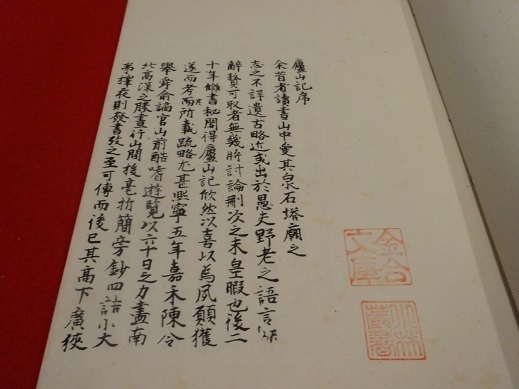 廬山記序
余昔者讀書山中愛其泉石塔廟之
志之不詳遺古略近或出於愚夫野老之語言淺
辭贅可取者無幾將討論刪次之未皇暇也後二
十年讎書秘閣得廬山記欣然以喜以為夙願獲
遂而考其所載疏略尤甚熙寧五年嘉禾陳令
舉舜俞謫官山前酷嗜遊覽以六十日之力盡南
北高深之勝晝行山間援毫折簡旁鈔四詰小大
弗擇夜則發書攷之至可傳而後已其高下廣狹
文庫